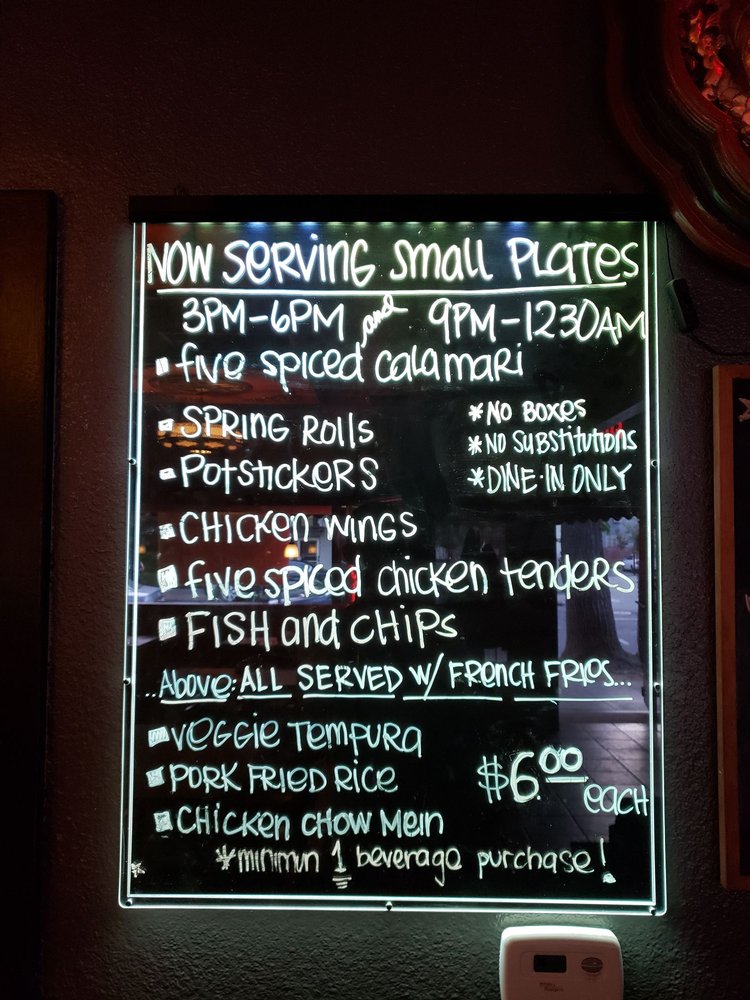 NOW SERVING SMALL PLATES
3PM-6PM and 9PM-1230AM
five spiced calamari
SPRING ROLLS
POTSTICKERS
*NO BOXES
*NO SUBSTITUTIONS
*DINE-IN ONLY
CHICKEN WINGS
five spiced chicken tenders
FISH and CHIPS
..Above: ALL SERVED W/ FRENCH FRIES...
VEGGIE TEMPURA
PORK FRIED RICE
CHICKEN CHOW MEIN
$6.00 each
*minimun 1 beverage purchase!